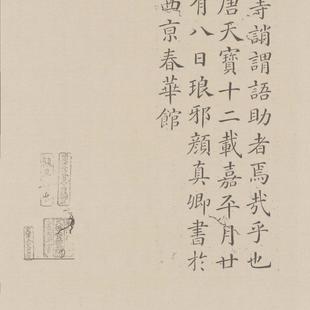 等誚謂語助者焉哉乎也
唐天寶十二載嘉平月廿
有八日琅邪顏真卿書於
西亰春華館